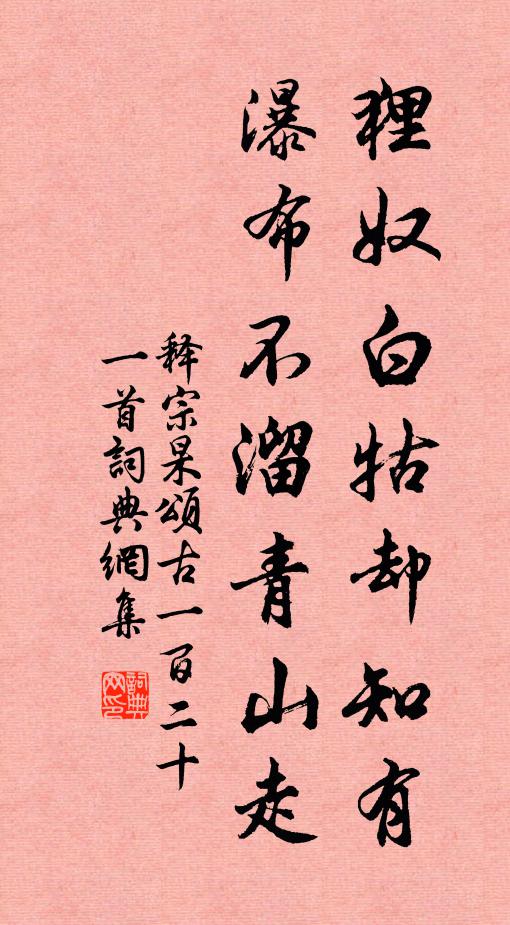 狸奴白牯却知有
瀑布不溜青山走
释宗杲頌古一百二十
一首詞典網集
詞典
网印